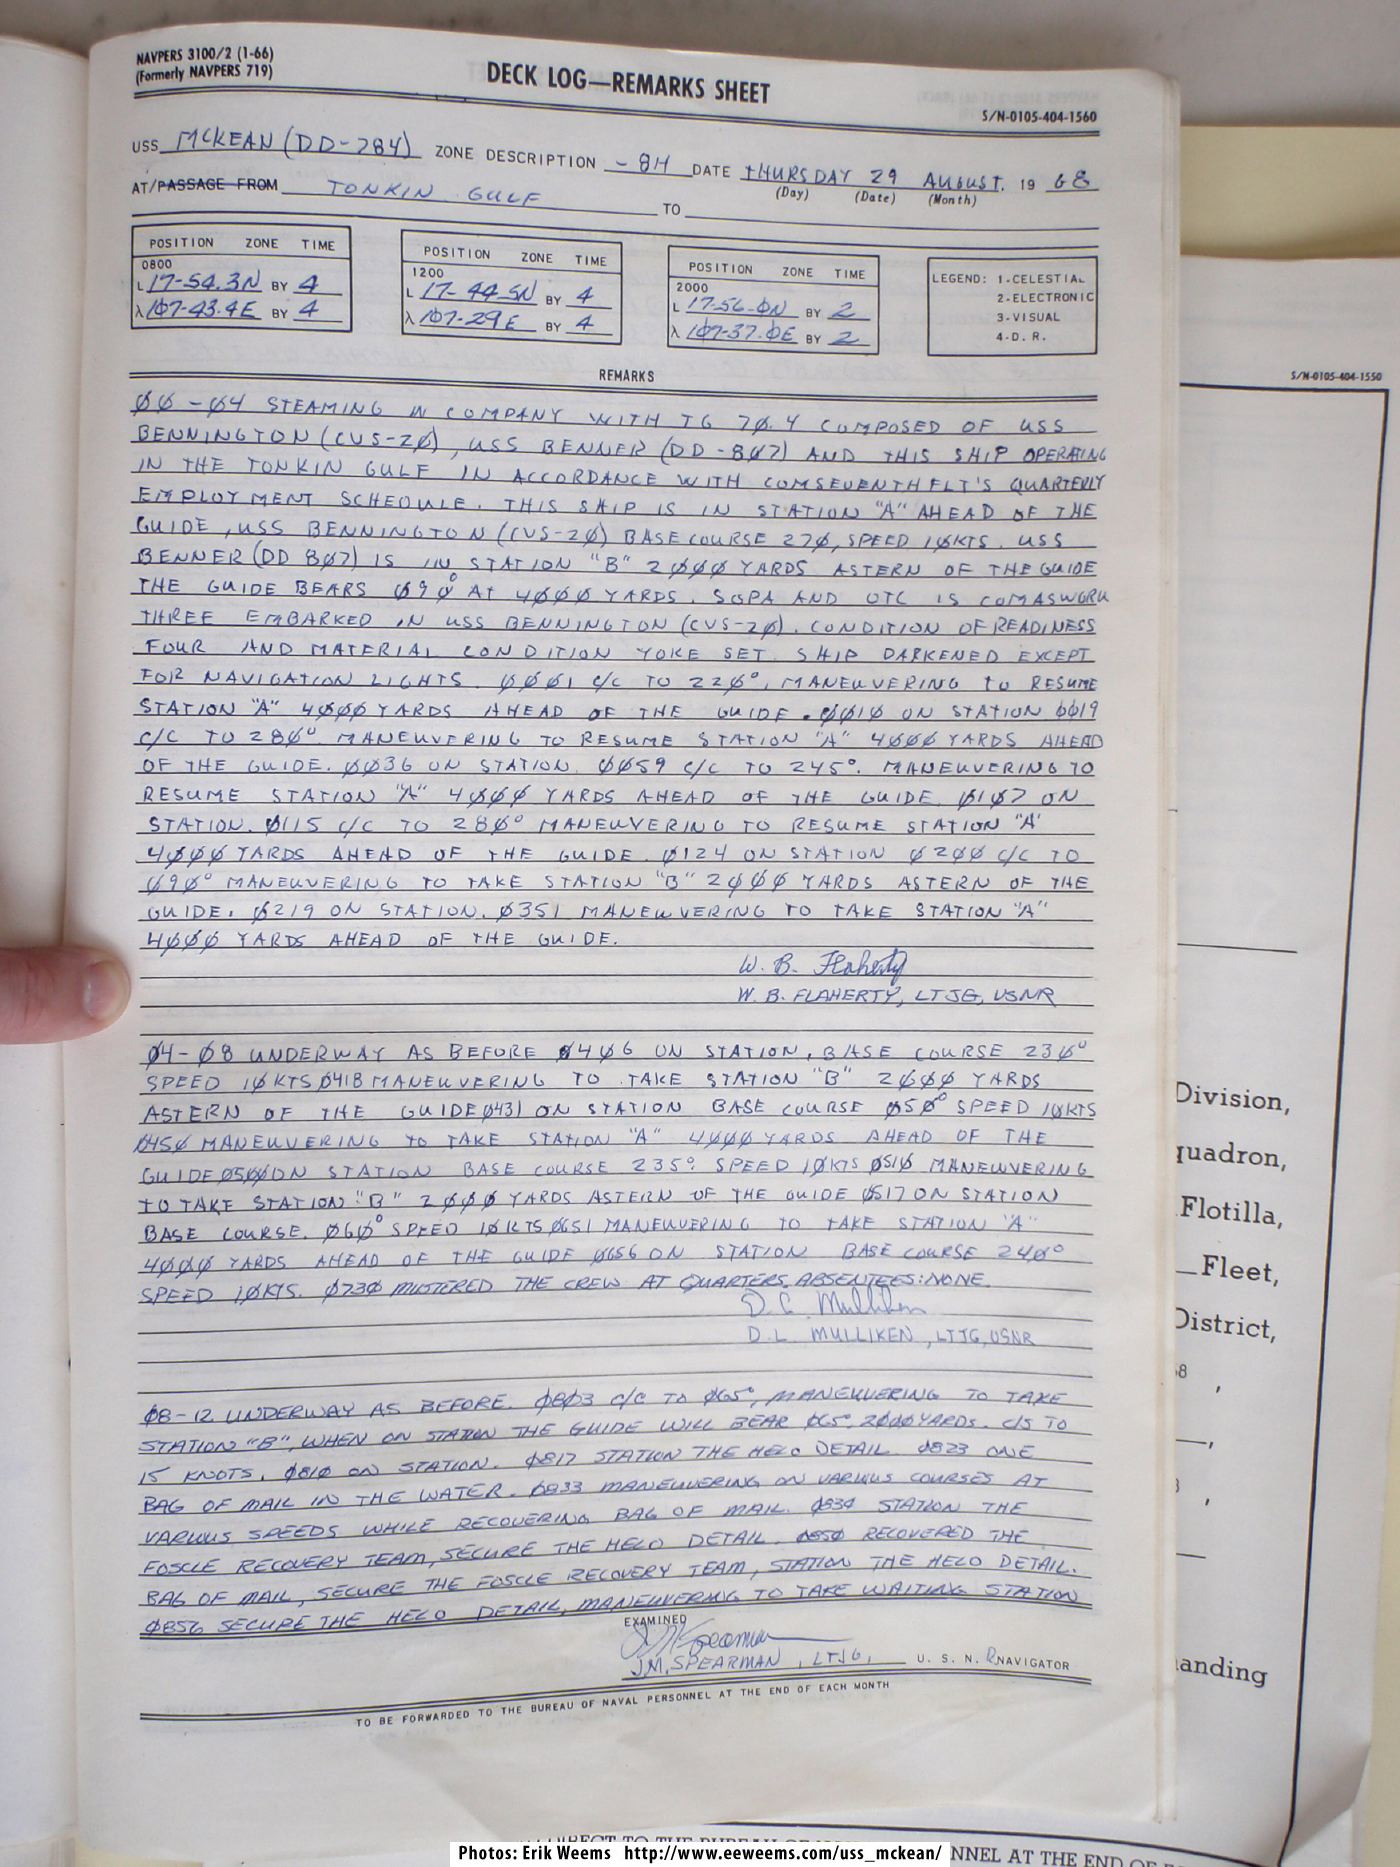 NAVPERS 3100/2 (1-66)
(Formerly NAVPERS 719)
DECK LOG—REMARKS SHEET
S/N-0105-404-1560
USS MCKEAN (DD-784) ZONE DESCRIPTION -8H DATE THURSDAY 29 AUGUST, 19 68
(Day) (Date) (Month)
AT/PASSAGE FROM TONKIN GULF TO
POSITION ZONE TIME
0800
L 17-54.3N BY 4
λ 107-43.4E BY 4
POSITION ZONE TIME
1200
L 17-44.5N BY 4
λ 107-29E BY 4
POSITION ZONE TIME
2000
L 17-56.0N BY 2
λ 107-37.0E BY 2
LEGEND: 1-CELESTIAL
2-ELECTRONIC
3-VISUAL
4-D. R.
REMARKS
00-04 STEAMING IN COMPANY WITH TG 70.4 COMPOSED OF USS
BENNINGTON (CVS-20), USS BENNER (DD-807) AND THIS SHIP OPERATING
IN THE TONKIN GULF IN ACCORDANCE WITH COMSEVENTHFLT'S QUARTERLY
EMPLOYMENT SCHEDULE. THIS SHIP IS IN STATION "A" AHEAD OF THE
GUIDE, USS BENNINGTON (CVS-20) BASE COURSE 270, SPEED 10KTS. USS
BENNER (DD 807) IS IN STATION "B" 2000 YARDS ASTERN OF THE GUIDE
THE GUIDE BEARS 090° AT 4000 YARDS. SOPA AND OTC IS COMASWGRU
THREE EMBARKED IN USS BENNINGTON (CVS-20). CONDITION OF READINESS
FOUR AND MATERIAL CONDITION YOKE SET. SHIP DARKENED EXCEPT
FOR NAVIGATION LIGHTS. 0001 C/C TO 220°, MANEUVERING TO RESUME
STATION "A" 4000 YARDS AHEAD OF THE GUIDE. 0010 ON STATION 0019
C/C TO 280° MANEUVERING TO RESUME STATION "A" 4000 YARDS AHEAD
OF THE GUIDE. 0036 ON STATION. 0059 C/C TO 245°. MANEUVERING TO
RESUME STATION "A" 4000 YARDS AHEAD OF THE GUIDE. 0107 ON
STATION. 0115 C/C TO 280° MANEUVERING TO RESUME STATION "A"
4000 YARDS AHEAD OF THE GUIDE. 0124 ON STATION 0200 C/C TO
090° MANEUVERING TO TAKE STATION "B" 2000 YARDS ASTERN OF THE
GUIDE. 0219 ON STATION. 0351 MANEUVERING TO TAKE STATION "A"
4000 YARDS AHEAD OF THE GUIDE.
W. B. Flaherty
W. B. FLAHERTY, LTJG, USNR
04-08 UNDERWAY AS BEFORE 0406 ON STATION, BASE COURSE 230°
SPEED 10KTS 0418 MANEUVERING TO TAKE STATION "B" 2000 YARDS
ASTERN OF THE GUIDE 0431 ON STATION BASE COURSE 050° SPEED 10KTS
0450 MANEUVERING TO TAKE STATION "A" 4000 YARDS AHEAD OF THE
GUIDE 0500 ON STATION BASE COURSE 235° SPEED 10KTS 0510 MANEUVERING
TO TAKE STATION "B" 2000 YARDS ASTERN OF THE GUIDE 0517 ON STATION
BASE COURSE. 060° SPEED 10KTS 0651 MANEUVERING TO TAKE STATION "A"
4000 YARDS AHEAD OF THE GUIDE 0656 ON STATION BASE COURSE 240°
SPEED 10KTS. 0730 MUSTERED THE CREW AT QUARTERS. ABSENTEES: NONE
D. L. Mulliken
D. L. MULLIKEN, LTJG, USNR
08-12 UNDERWAY AS BEFORE. 0803 C/C TO 065°, MANEUVERING TO TAKE
STATION "B", WHEN ON STATION THE GUIDE WILL BEAR 065°, 2000 YARDS. C/S TO
15 KNOTS. 0810 ON STATION. 0817 STATION THE HELO DETAIL. 0823 ONE
BAG OF MAIL IN THE WATER. 0833 MANEUVERING ON VARIOUS COURSES AT
VARIOUS SPEEDS WHILE RECOVERING BAG OF MAIL. 0834 STATION THE
FOSCLE RECOVERY TEAM, SECURE THE HELO DETAIL. 0850 RECOVERED THE
BAG OF MAIL, SECURE THE FOSCLE RECOVERY TEAM, STATION THE HELO DETAIL.
0856 SECURE THE HELO DETAIL, MANEUVERING TO TAKE WAITING STATION
EXAMINED
J M Spearman
J.M. SPEARMAN, LTJG, U. S. N. R NAVIGATOR
TO BE FORWARDED TO THE BUREAU OF NAVAL PERSONNEL AT THE END OF EACH MONTH
S/N-0105-404-1550
Division,
quadron,
Flotilla,
Fleet,
District,
anding
DIRECT TO THE BUREAU
NNEL AT THE END OF
Photos: Erik Weems http://www.eeweems.com/uss_mckean/